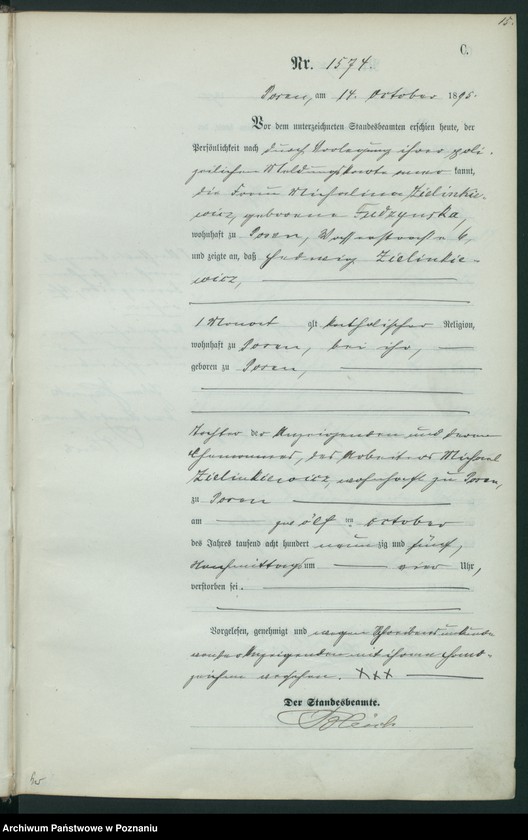 15.
C.
Nr. 1574.
Posen, am 14. October 1895.
Vor dem unterzeichneten Standesbeamten erschien heute, der
Persönlichkeit nach durch Vorlegung ihrer poli-
zeilichen Meldungskarte aner kannt,
die Frau Michalina Zielinkie-
wicz, geborene
wohnhaft zu Posen, Wasserstraße 6,
und zeigte an, daß Hedwig Zielinkie-
wicz,
1 Monat alt katholischer Religion,
wohnhaft zu Posen, bei ihr,
geboren zu Posen,
Tochter der Anzeigenden und deren
Ehemannes, des Arbeiters Michael
Zielinkiewicz, wohnhaft zu Posen,
zu Posen
am zwölften October
des Jahres tausend acht hundert neunzig und fünf,
Nachmittags um vier Uhr,
verstorben sei.
Vorgelesen, genehmigt und wegen Schreibensunkunde
von der Anzeigenden mit ihrem Hand-
zeichen versehen. XXX
Der Standesbeamte.
Archiwum Państwowe w Poznaniu